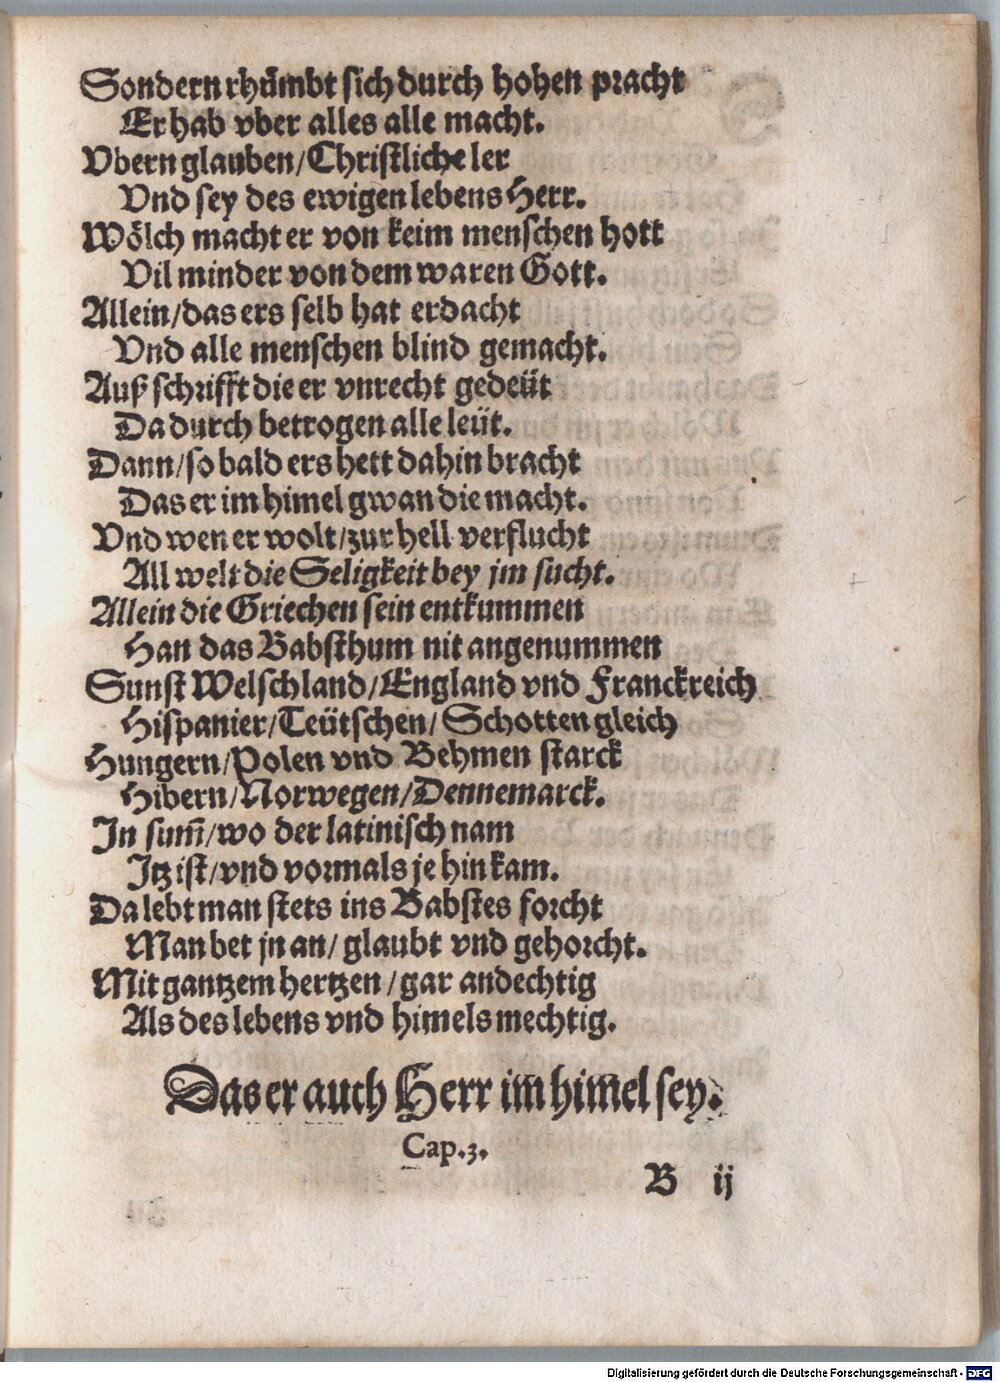 Sondern rhümbt sich durch hohen pracht
Er hab vber alles alle macht.
Vbern glauben/Christliche ler
Vnd sey des ewigen lebens Herr.
Wölch macht er von keim menschen hott
Vil minder von dem waren Gott.
Allein/das ers selb hat erdacht
Vnd alle menschen blind gemacht.
Auß schrifft die er vnrecht gedeüt
Da durch betrogen alle leüt.
Dann/so bald ers hett dahin bracht
Das er im himel gwan die macht.
Vnd wen er wolt/zur hell verflucht
All welt die Seligkeit bey jm sucht.
Allein die Griechen sein entkummen
Han das Babsthum nit angenummen
Sunst Welschland/England vnd Franckreich
Hispanier/Teütschen/Schotten gleich
Hungern/Polen vnd Behmen starck
Hibern/Norwegen/Dennemarck.
In sum̄/wo der latinisch nam
Itz ist/vnd vormals je hin kam.
Da lebt man stets ins Babstes forcht
Man bet jn an/glaubt vnd gehorcht.
Mit gantzem hertzen/gar andechtig
Als des lebens vnd himels mechtig.
Das er auch Herr im himel sey.
Cap.3.
B ij
Digitalisierung gefördert durch die Deutsche Forschungsgemeinschaft - DFG